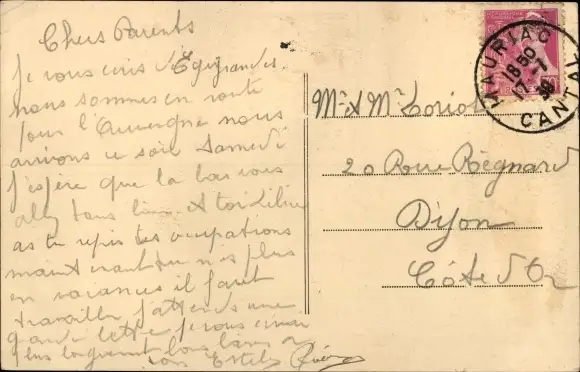 Chers Parents
Je vous écris d'Egugrandes.
nous sommes en route
pour l'Auvergne nous
arrivons ce soir Samedi
J'espère que la bas vous
allez tous bien. et toi
as tu repis tes occupations
maintenant tu n'es plus
en vacances il faut
travailler J'attends une
grande lettre je vous
plus longuement bons baisers
MAURIAC
16 50
17-7
38
CANTAL
Mr & Mr Loriot
20 Rue Régnard
Dijon
Côte d'Or